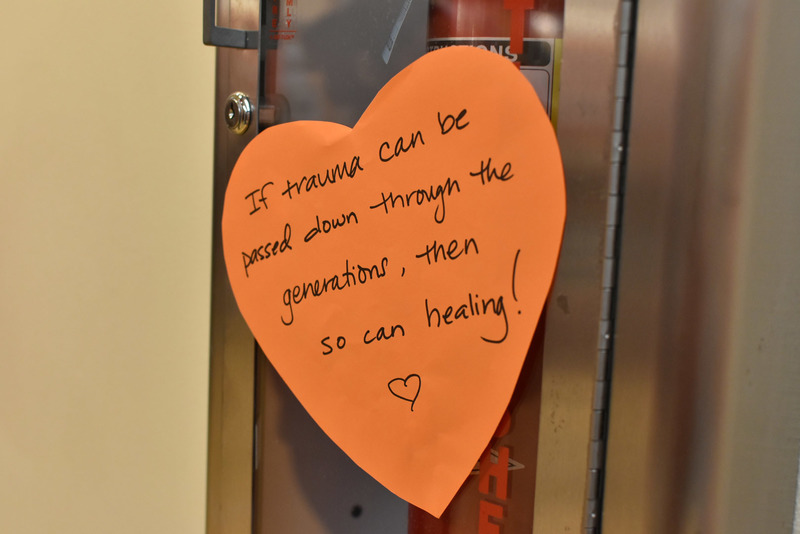 If trauma can be
passed down through the
generations, then
so can healing!